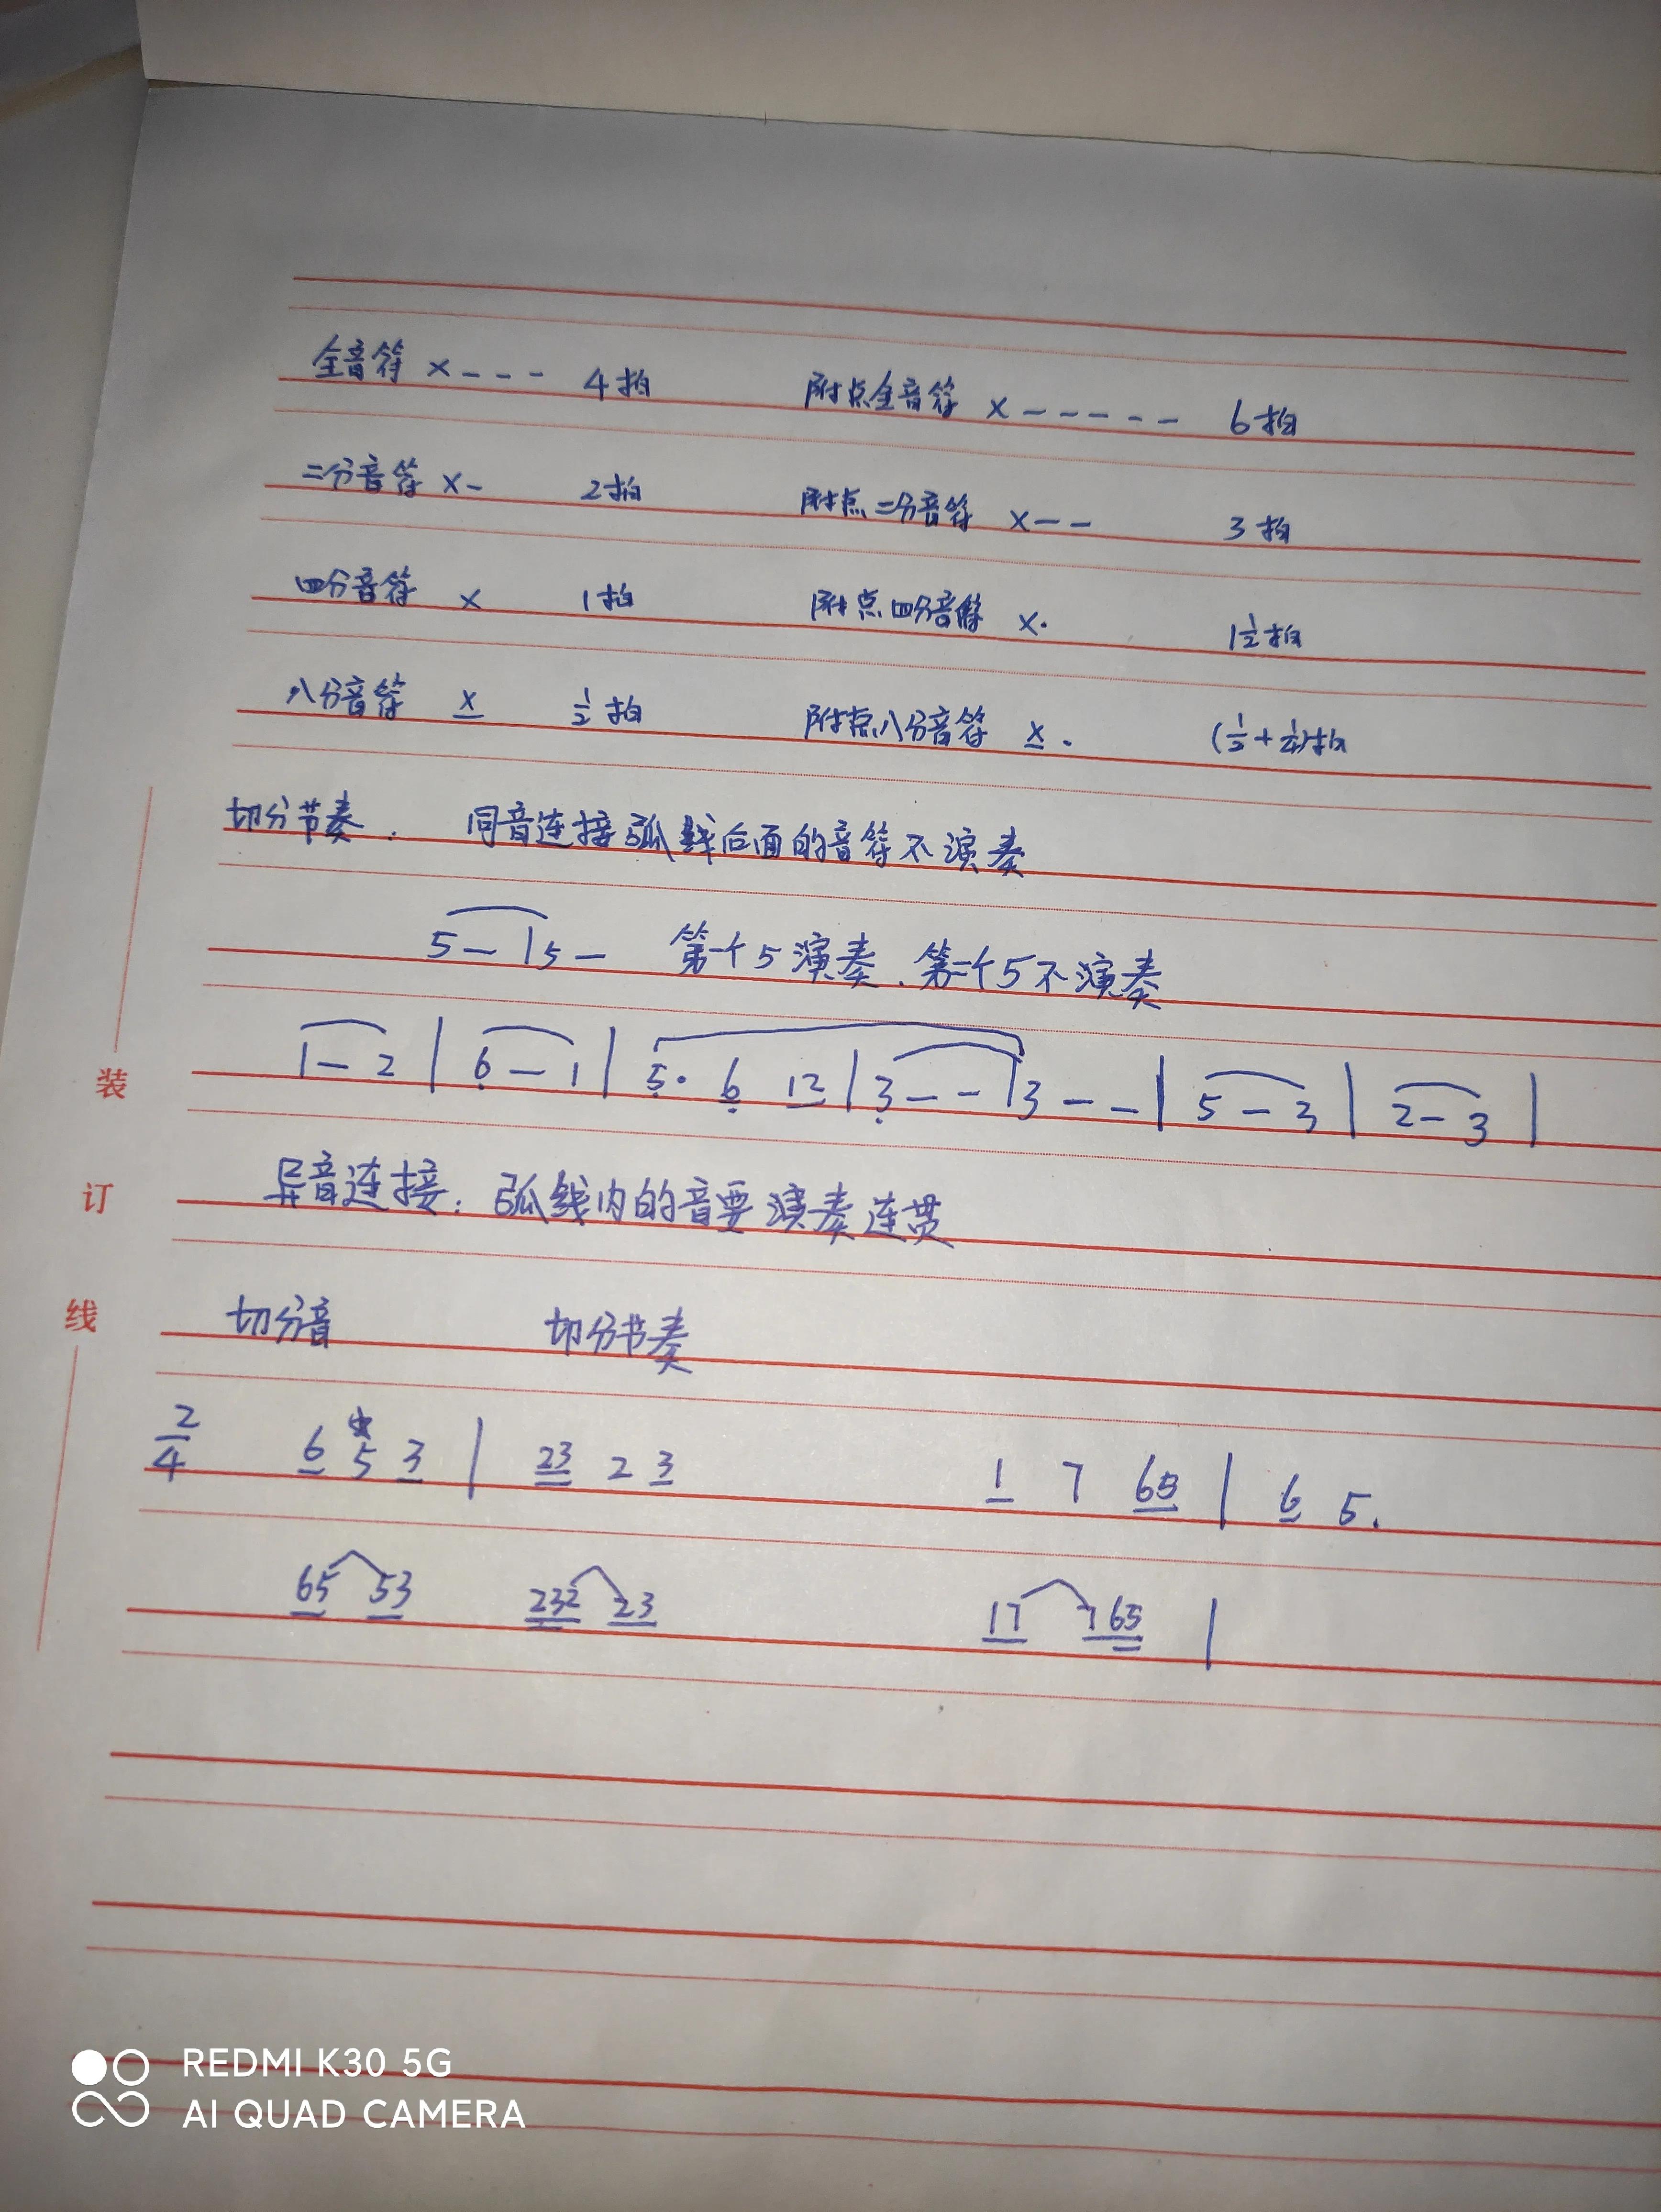 全音符 ×--- 4拍 附点全音符 ×----- 6拍
二分音符 ×- 2拍 附点二分音符 ×-- 3拍
四分音符 × 1拍 附点四分音符 ×· 1½拍
八分音符 × ½拍 附点八分音符 ×· (½+¼)拍
切分节奏. 同音连接弧线后面的音符不演奏
5-|5- 第一个5演奏、第二个5不演奏
1-2|6-1|5·6 12|3--|3--|5-3|2-3|
装
异音连接:弧线内的音要演奏连贯
订
切分音 切分节奏
线
2/4 6 5 3|23 2 3 1 7 65|6 5.
65 53 232 23 17 765|
REDMI K30 5G
AI QUAD CAMERA